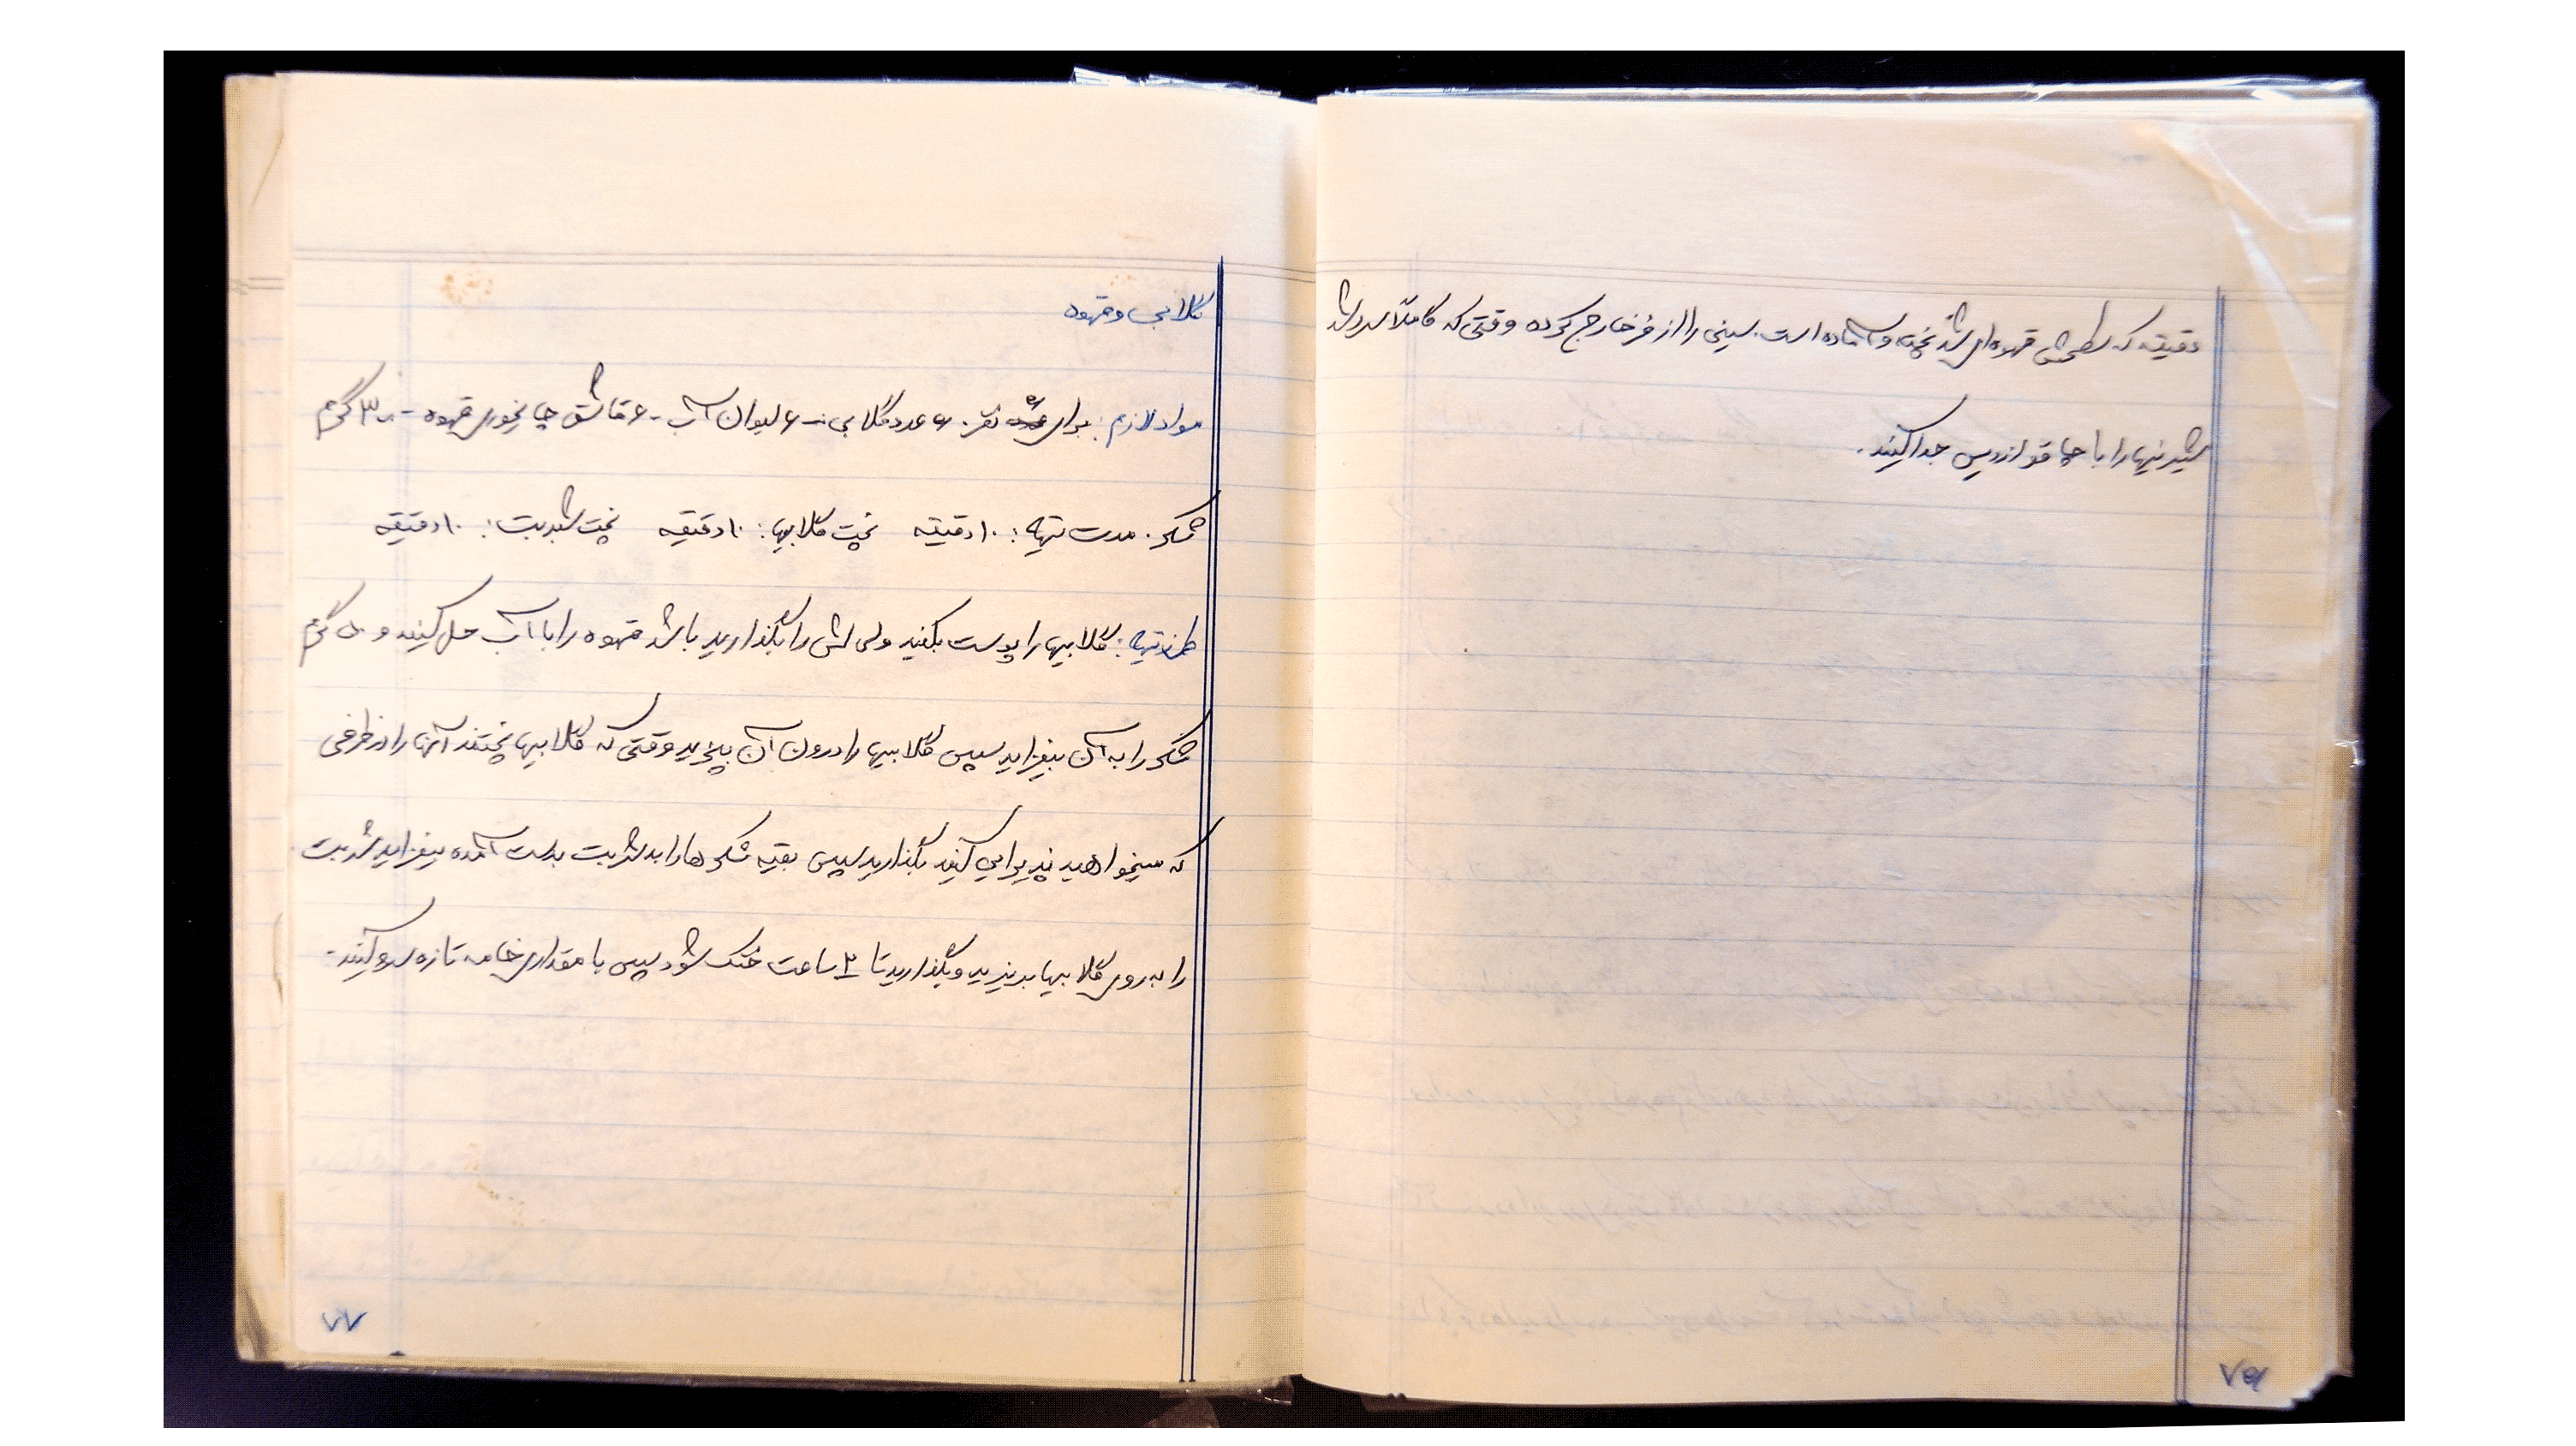 دقیقه که سطحش قهوه‌ای شد پخته و آماده است. سینی را از فر خارج کرده وقتی که کاملاً سرد شد
شیرینیها را با چاقو از دیس جدا کنید.
۷۶
گلابی و قهوه
مواد لازم: برای ۶ نفر. ۶ عدد گلابی - ۶ لیوان آب - ۶ قاشق چایخوری قهوه - ۳۰۰ گرم
شکر. مدت تهیه: ۱۰ دقیقه پخت گلابیها: ۱۰ دقیقه پخت شربت: ۱۰ دقیقه
طرز تهیه: گلابیها را پوست بکنید ولی را بگذارید باشد قهوه را با آب حل کنید و گرم
شکر را به آن بیفزاید سپس گلابیها را درون آن بپزید وقتی که گلابیها پختند آنها را در ظرفی
که میخواهید پذیرایی کنید بگذارید سپس بقیه شکرها را به شربت بدست آمده بیفزاید شربت
را به روی گلابیها بریزید و بگذارید تا ۳ ساعت خنک شود سپس با مقداری خامه تازه سرو کنید.
۷۷